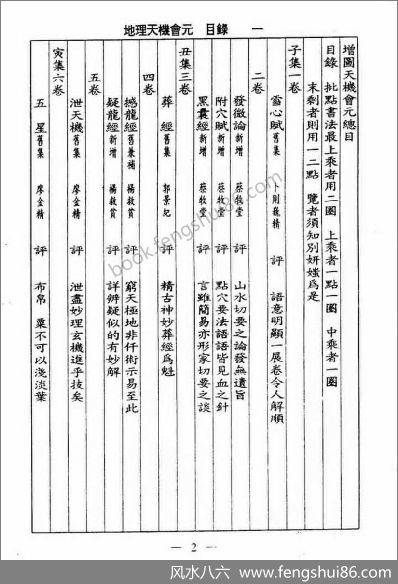 地理天機會元 目錄 一
增圖天機會元總目
目錄 批點書法最上乘者用二圈 上乘者一點一圈 中乘者一圈
末剩者則用一二點 覽者須知別妍媸爲是
子集一卷
雪心賦舊集 卜則巍精 評 語意明顯一展卷令人解順
二卷
發微論新增 蔡牧堂 評 山水切要之論發無遺旨
附穴賦新增 蔡牧堂 評 點穴要法語語皆見血之針
黑囊經新增 蔡牧堂 評 言雖簡易亦形家切要之談
丑集三卷
葬經舊集 郭景純 評 精古神妙葬經爲魁
四卷
撼龍經舊集兼補 楊救貧 評 窮天極地非仟術示易至此
疑龍經新增 楊救貧 評 詳辨疑似的有妙解
五卷
泄天機舊集 廖金精 評 泄盡妙理玄機進乎技矣
寅集六卷
五星舊集 廖金精 評 布帛粟不可以淺淡葉
— 2 —
book.fengshui86.com
风水八六 - www.fengshui86.com